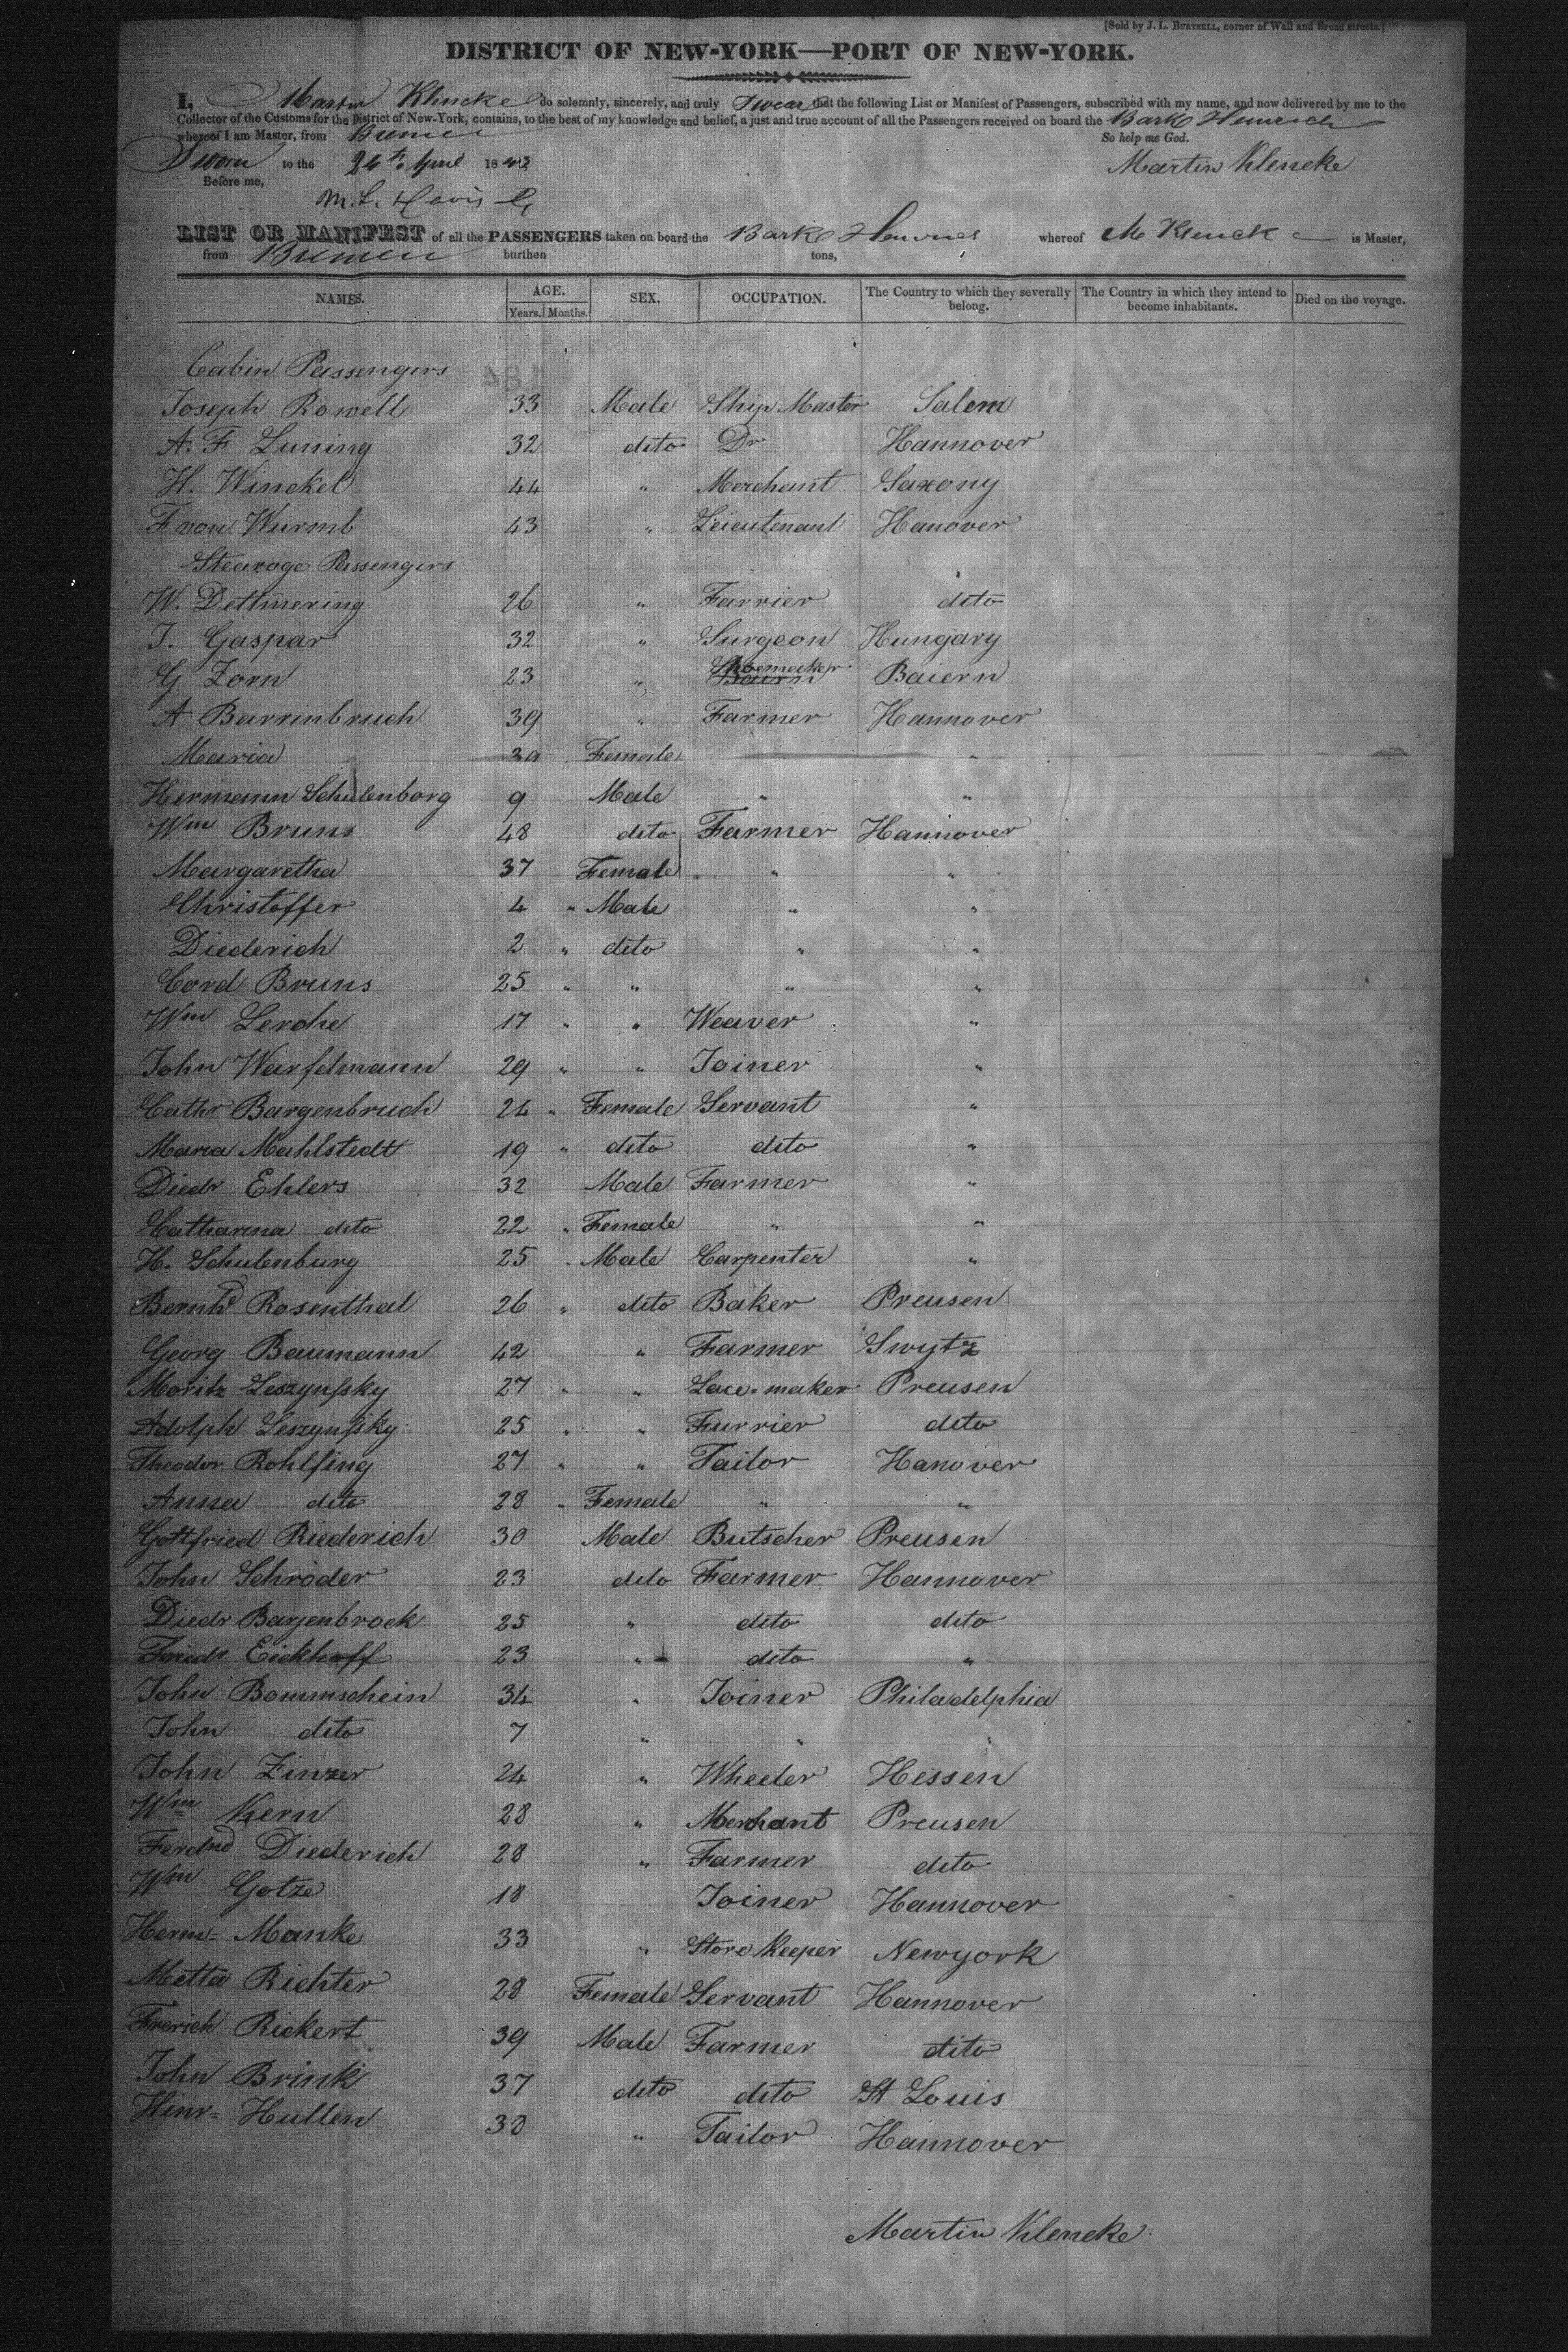 [Sold by J. L. BURTSELL, corner of Wall and Broad streets.]
DISTRICT OF NEW-YORK—PORT OF NEW-YORK.
I, Martin Klencke do solemnly, sincerely, and truly Swear that the following List or Manifest of Passengers, subscribed with my name, and now delivered by me to the
Collector of the Customs for the District of New-York, contains, to the best of my knowledge and belief, a just and true account of all the Passengers received on board the Bark Heinrich
whereof I am Master, from Bremen So help me God.
Sworn to the 24th April 1843 Martin Klencke
Before me,
M. L. Davis
LIST OR MANIFEST of all the PASSENGERS taken on board the Bark whereof M Klencke is Master,
from Bremen burthen tons,
NAMES. AGE. Years. Months. SEX. OCCUPATION. The Country to which they severally belong. The Country in which they intend to become inhabitants. Died on the voyage.
Cabin Passengers
Joseph Rowell 33 Male Ship Master Salem
A. F Luning 32 dito Dr Hannover
H. Winckel 44 " Merchant Saxony
F von Wurmb 43 " Leieutenant Hanover
Stearage Passengers
W. Dettmering 26 " Farrier dito
J. Gaspar 32 " Surgeon Hungary
G Zorn 23 " Shoemacker Baiern
A Barrinbruch 39 " Farmer Hannover
Maria 30 Female "
Hermann Schulenborg 9 Male " "
Wm Bruns 48 dito Farmer Hannover
Margaretha 37 Female " "
Christoffer 4 " Male " "
Diederich 2 " dito " "
Cord Bruns 25 " " " "
Wm Lerche 17 " " Weaver "
John Warfelmann 29 " " Joiner "
Cathr Bargenbruch 24 " Female Servant "
Maria Mahlstedt 19 " dito dito "
Diedr Ehlers 32 Male Farmer "
Catharina dito 22 " Female " "
H. Schulenburg 25 " Male Carpenter "
Bernhd Rosenthal 26 " dito Baker Preusen
Georg Baumann 42 " Farmer Swytz
Moritz Leszynsky 27 " " Lace-maker Preusen
Adolph Leszynsky 25 " " Furrier dito
Theodor Rohlfing 27 " " Tailor Hanover
Anna dito 28 " Female " "
Gottfried Riederich 30 Male Butscher Preusen
John Schröder 23 dito Farmer Hannover
Diedr Barjenbrock 25 " dito dito
Friedr Eickhoff 23 " dito "
John Bommschein 34 " Joiner Philadelphia
John dito 7 " " "
John Zinzer 24 " Wheeler Hessen
Wm Kern 28 " Merchant Preusen
Ferdnd Diederich 28 " Farmer dito
Wm Gotze 18 Joiner Hannover
Herm= Manke 33 " Store Keeper Newyork
Metta Richter 28 Female Servant Hannover
Frerich Rickert 39 Male Farmer dito
John Brink 37 dito dito St Louis
Hinr= Hullen 30 " Tailor Hannover
Martin Klencke